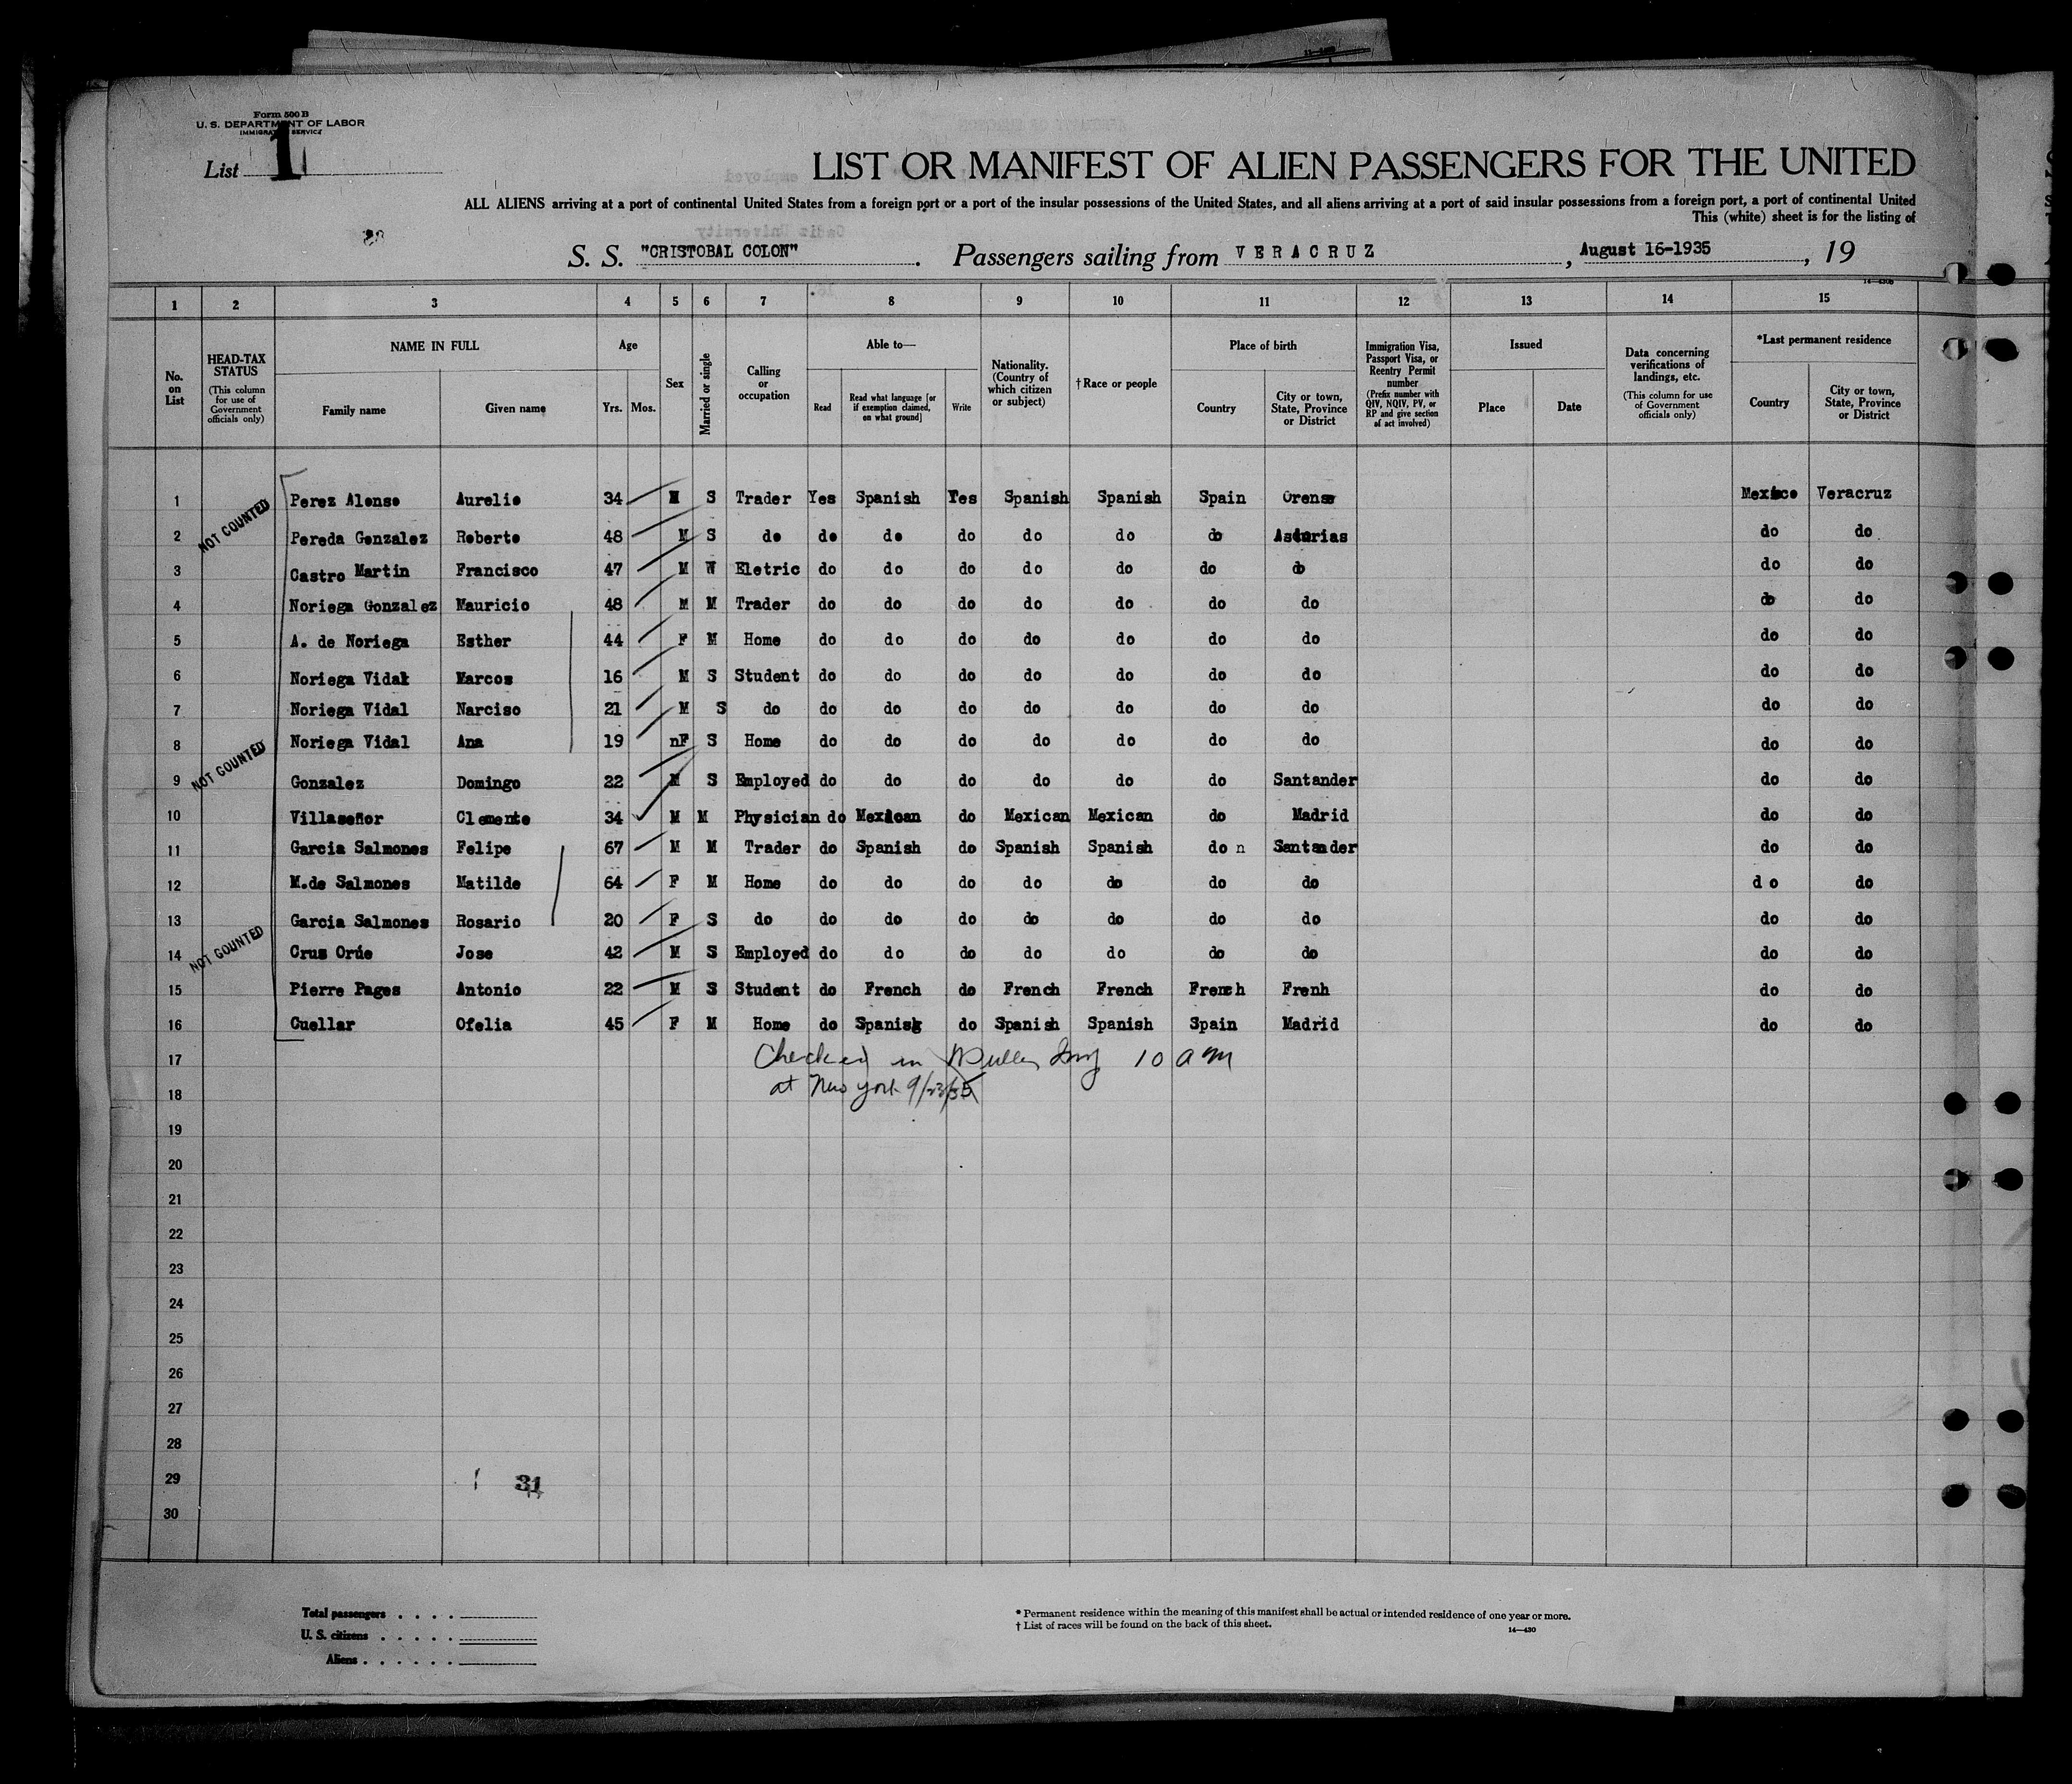 Form 500 B
U. S. DEPARTMENT OF LABOR
IMMIGRATION SERVICE
List 1
LIST OR MANIFEST OF ALIEN PASSENGERS FOR THE UNITED
ALL ALIENS arriving at a port of continental United States from a foreign port or a port of the insular possessions of the United States, and all aliens arriving at a port of said insular possessions from a foreign port, a port of continental United
This (white) sheet is for the listing of
S. S. "CRISTOBAL COLON". Passengers sailing from VERACRUZ, August 16-1935, 19
1 2 3 4 5 6 7 8 9 10 11 12 13 14 15
No. on List
HEAD-TAX STATUS (This column for use of Government officials only)
NAME IN FULL Family name Given name
Age Yrs. Mos.
Sex
Married or single
Calling or occupation
Able to— Read Read what language [or if exemption claimed, on what ground] Write
Nationality. (Country of which citizen or subject)
†Race or people
Place of birth Country City or town, State, Province or District
Immigration Visa, Passport Visa, or Reentry Permit number (Prefix number with QIV, NQIV, PV, or RP and give section of act involved)
Issued Place Date
Data concerning verifications of landings, etc. (This column for use of Government officials only)
*Last permanent residence Country City or town, State, Province or District
1 Perez Alonso Aurelio 34 M S Trader Yes Spanish Yes Spanish Spanish Spain Orense Mexico Veracruz
NOT COUNTED
2 Pereda Gonzalez Roberto 48 M S do do do do do do do Asturias do do
3 Castro Martin Francisco 47 M W Eletric do do do do do do do do do
4 Noriega Gonzalez Mauricio 48 M M Trader do do do do do do do do do
5 A. de Noriega Esther 44 F M Home do do do do do do do do do
6 Noriega Vidal Marcos 16 M S Student do do do do do do do do do
7 Noriega Vidal Narciso 21 M S do do do do do do do do do do
8 Noriega Vidal Ana 19 nF S Home do do do do do do do do do
NOT COUNTED
9 Gonzalez Domingo 22 M S Employed do do do do do do Santander do do
10 Villaseñor Clemente 34 M M Physician do Mexican do Mexican Mexican do Madrid do do
11 Garcia Salmones Felipe 67 M M Trader do Spanish do Spanish Spanish do n Santander do do
12 M.de Salmones Matilde 64 F M Home do do do do do do do do do
13 Garcia Salmones Rosario 20 F S do do do do do do do do do do
NOT COUNTED
14 Crus Orúe Jose 42 M S Employed do do do do do do do do do
15 Pierre Pages Antonio 22 M S Student do French do French French French Frenh do do
16 Cuellar Ofelia 45 F M Home do Spanisg do Spanish Spanish Spain Madrid do do
17 Checked in 10 am
18 at New York 9/23/35
19
20
21
22
23
24
25
26
27
28
29 31
30
Total passengers . . . .
U. S. citizens . . . . .
Aliens . . . . . .
* Permanent residence within the meaning of this manifest shall be actual or intended residence of one year or more.
† List of races will be found on the back of this sheet.
14—430